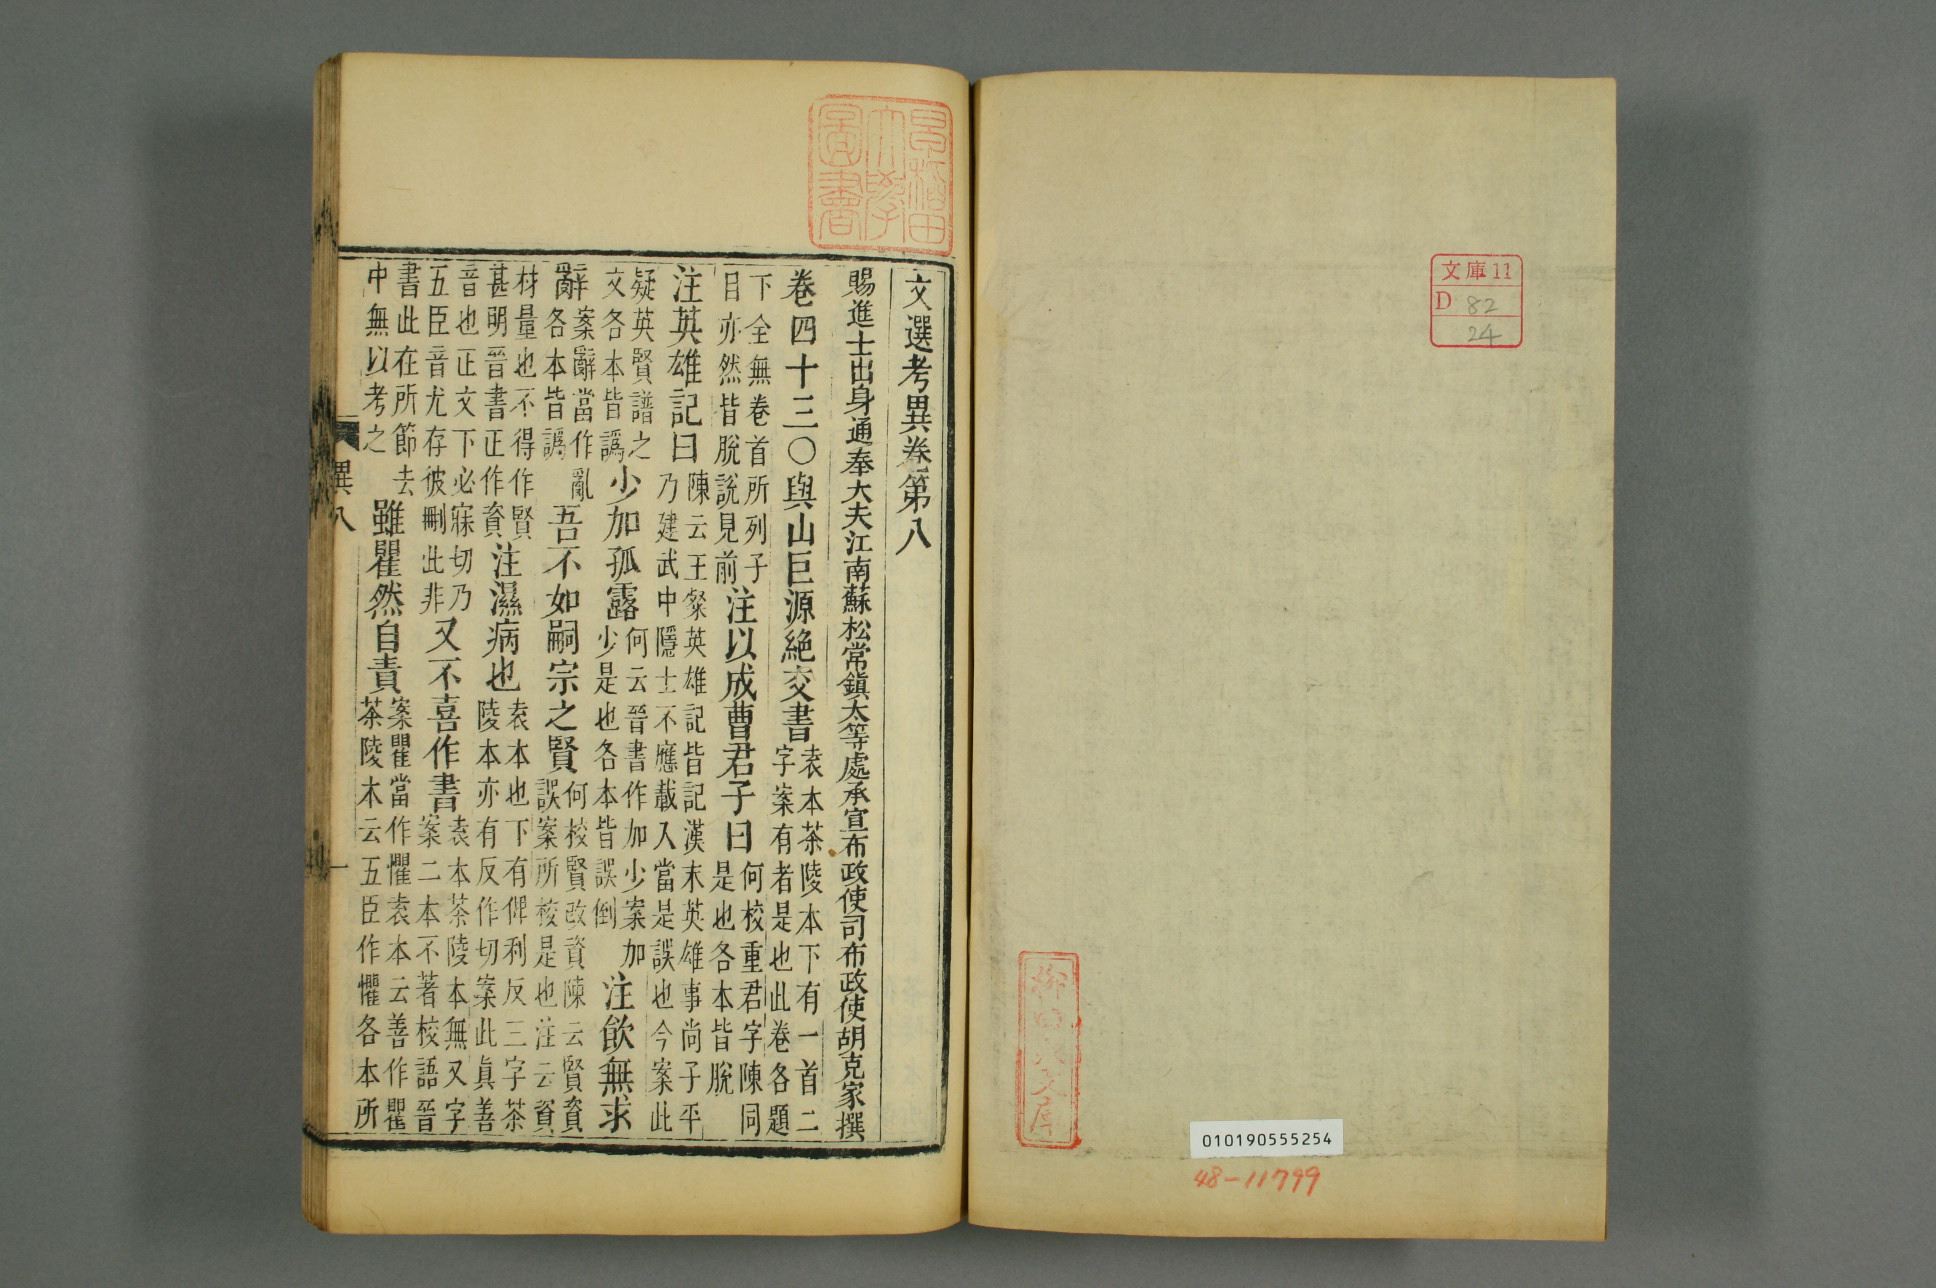 文庫11
D 82
24
柳田泉文庫
010190555254
48-11799
早稲田大學圖書
文選考異卷第八
賜進士出身通奉大夫江南蘇松常鎮太等處承宣布政使司布政使胡克家撰
卷四十三○與山巨源絶交書袁本茶陵本下有一首二字案有者是也此卷各題
下全無卷首所列子目亦然皆脫說見前注以成曹君子曰何校重君字陳同是也各本皆脫
注英雄記曰陳云王粲英雄記皆記漢末英雄事尚子平乃建武中隱士不應載入當是誤也今案此
疑英賢譜之文各本皆譌少加孤露何云晉書作加少案加少是也各本皆誤倒注飲無求
辭案辭當作亂各本皆譌吾不如嗣宗之賢何校賢改資陳云賢資誤案所校是也注云資
材量也不得作賢甚明晉書正作資注濕病也袁本也下有俾利反三字茶陵本亦有反作切案此真善
音也正文下必寐切乃五臣音尤存彼刪此非又不喜作書袁本茶陵本無又字案二本不著校語晉
書此在所節去中無以考之雖瞿然自責案瞿當作懼袁本云善作瞿茶陵本云五臣作懼各本所
異八
一